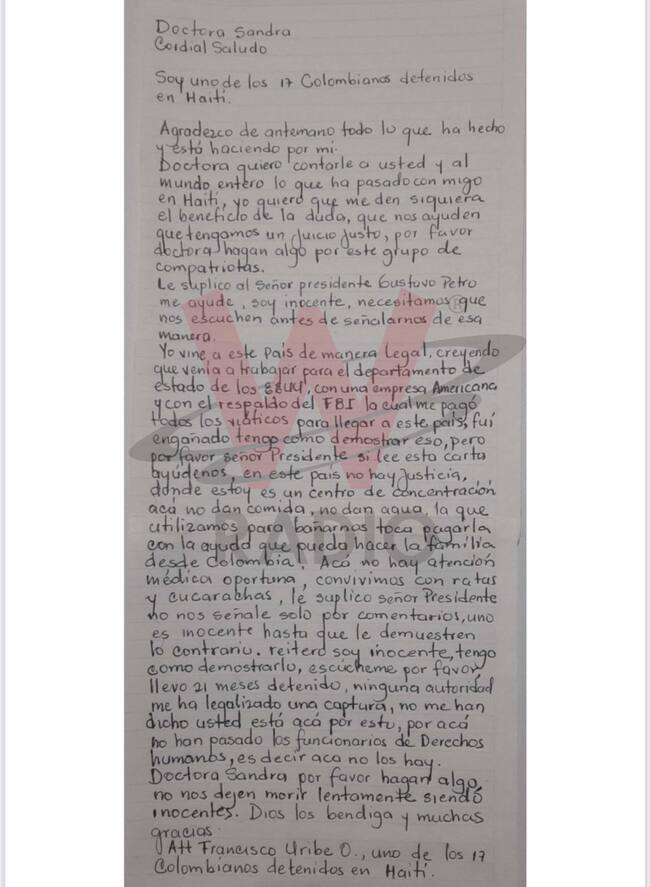 Doctora Sandra
Cordial Saludo
Soy uno de los 17 Colombianos detenidos
en Haití.
Agradezco de antemano todo lo que ha hecho
y está haciendo por mi.
Doctora quiero contarle a usted y al
mundo entero lo que ha pasado con migo
en Haití, yo quiero que me den siquiera
el beneficio de la duda, que nos ayuden
que tengamos un Juicio Justo, por favor
doctora hagan algo por este grupo de
compatriotas.
Le suplico al Señor presidente Gustavo Petro
me ayude, soy inocente, necesitamos que
nos escuchen antes de señalarnos de esa
manera.
Yo vine a este País de manera Legal, creyendo
que venía a trabajar para el departamento de
estado de los EEUU, con una empresa Americana
y con el respaldo del FBI la cual me pagó
todos los viáticos para llegar a este país, fuí
engañado tengo como demostrar eso, pero
por favor señor Presidente si lee esta carta
ayúdenos, en este país no hay Justicia,
donde estoy es un centro de concentración
acá no dan comida, no dan agua, la que
utilizamos para bañarnos toca pagarla
con la ayuda que pueda hacer la familia
desde Colombia, Acá no hay atención
médica oportuna, convivimos con ratas
y cucarachas, le suplico señor Presidente
no nos señale solo por comentarios, uno
es inocente hasta que le demuestren
lo contrario. reitero soy inocente, tengo
como demostrarlo, escúcheme por favor,
llevo 21 meses detenido, ninguna autoridad
me ha legalizado una captura, no me han
dicho usted está acá por esto, por acá
no han pasado los funcionarios de Derechos
humanos, es decir acá no los hay.
Doctora Sandra por favor hagan algo,
no nos dejen morir lentamente siendo
inocentes. Dios los bendiga y muchas
gracias.
Att Francisco Uribe O., uno de los 17
Colombianos detenidos en Haití.
W
RADIO